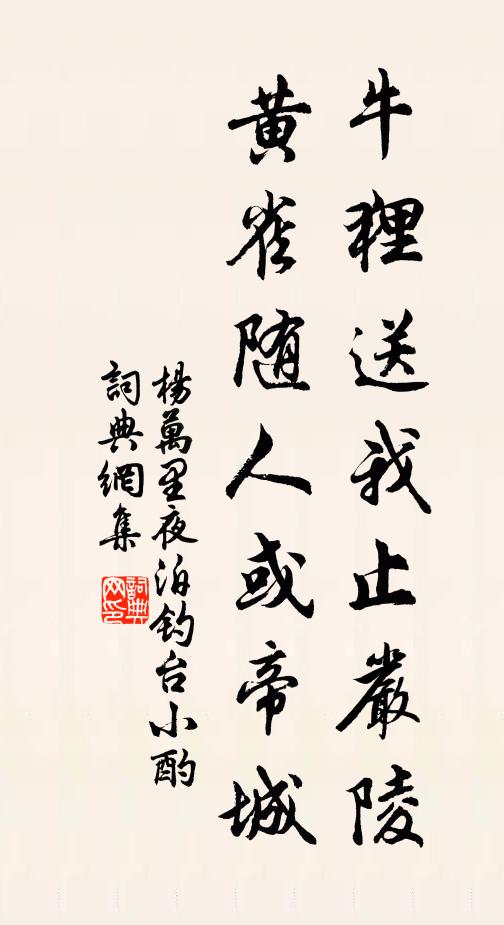 牛狸送我止嚴陵
黃雀随人或帝城
楊萬里夜泊钓台小酌
詞典網集
詞典網印